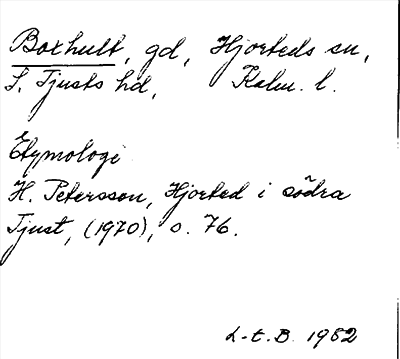 Boxhult, gd, Hjorteds sn,
S. Tjusts hd, Kalm. l.
Etymologi
H. Petersson, Hjorted i södra
Tjust, (1970), s. 76.
L-t. B. 1982